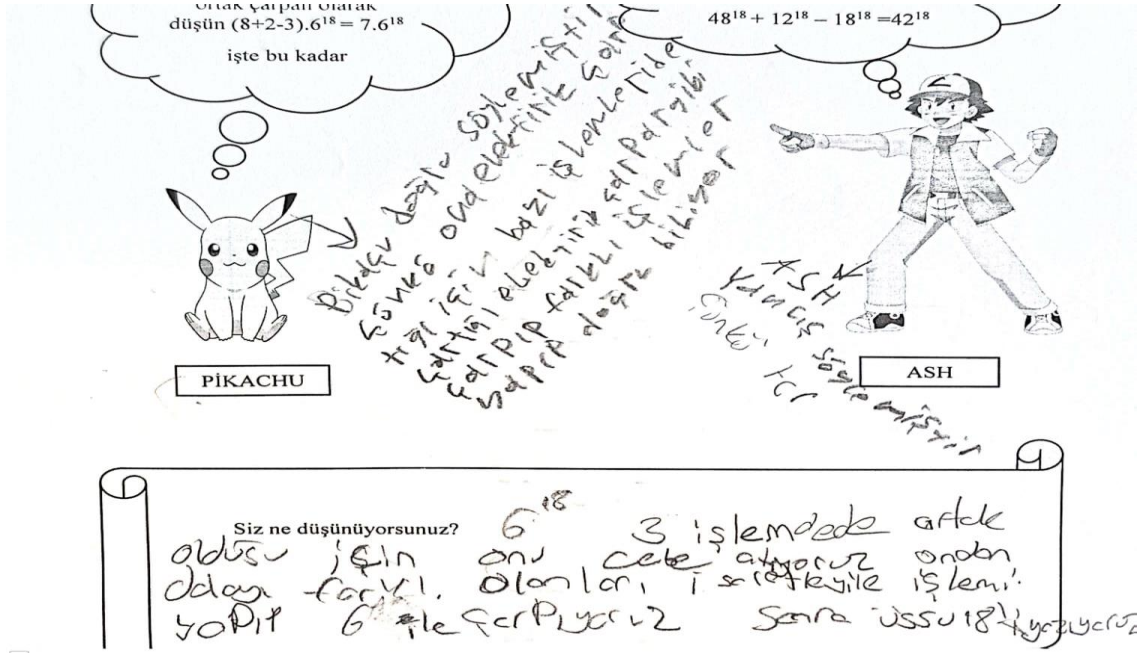 ortak çarpan olarak
düşün (8+2-3).6¹⁸ = 7.6¹⁸
işte bu kadar
48¹⁸ + 12¹⁸ – 18¹⁸ =42¹⁸
Pikaçu doğru söylemiştir
çünkü
için bazı işlemleride
çarpıp farklı işlemler
yapıp doğru
PİKACHU
ASH
yanlış söylemiştir
çünkü
ASH
Siz ne düşünüyorsunuz? 6¹⁸ 3 işlemdede ortak
olduğu için onu cebe atıyoruz ondan
farklı olanları işaretleyile işlemi
yapıp 6 ile çarpıyoruz sonra üssü 18 yazıyoruz